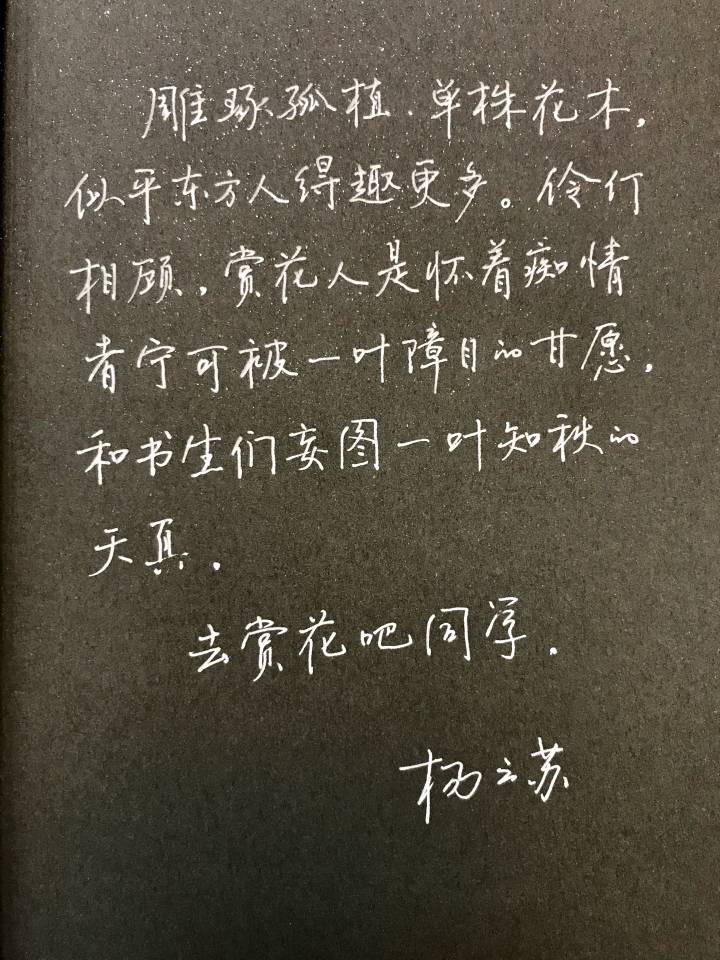 雕琢孤植、单株花木，
似乎东方人得趣更多。伶仃
相顾，赏花人是怀着痴情
者宁可被一叶障目的甘愿，
和书生们妄图一叶知秋的
天真。
去赏花吧同学。
杨云苏